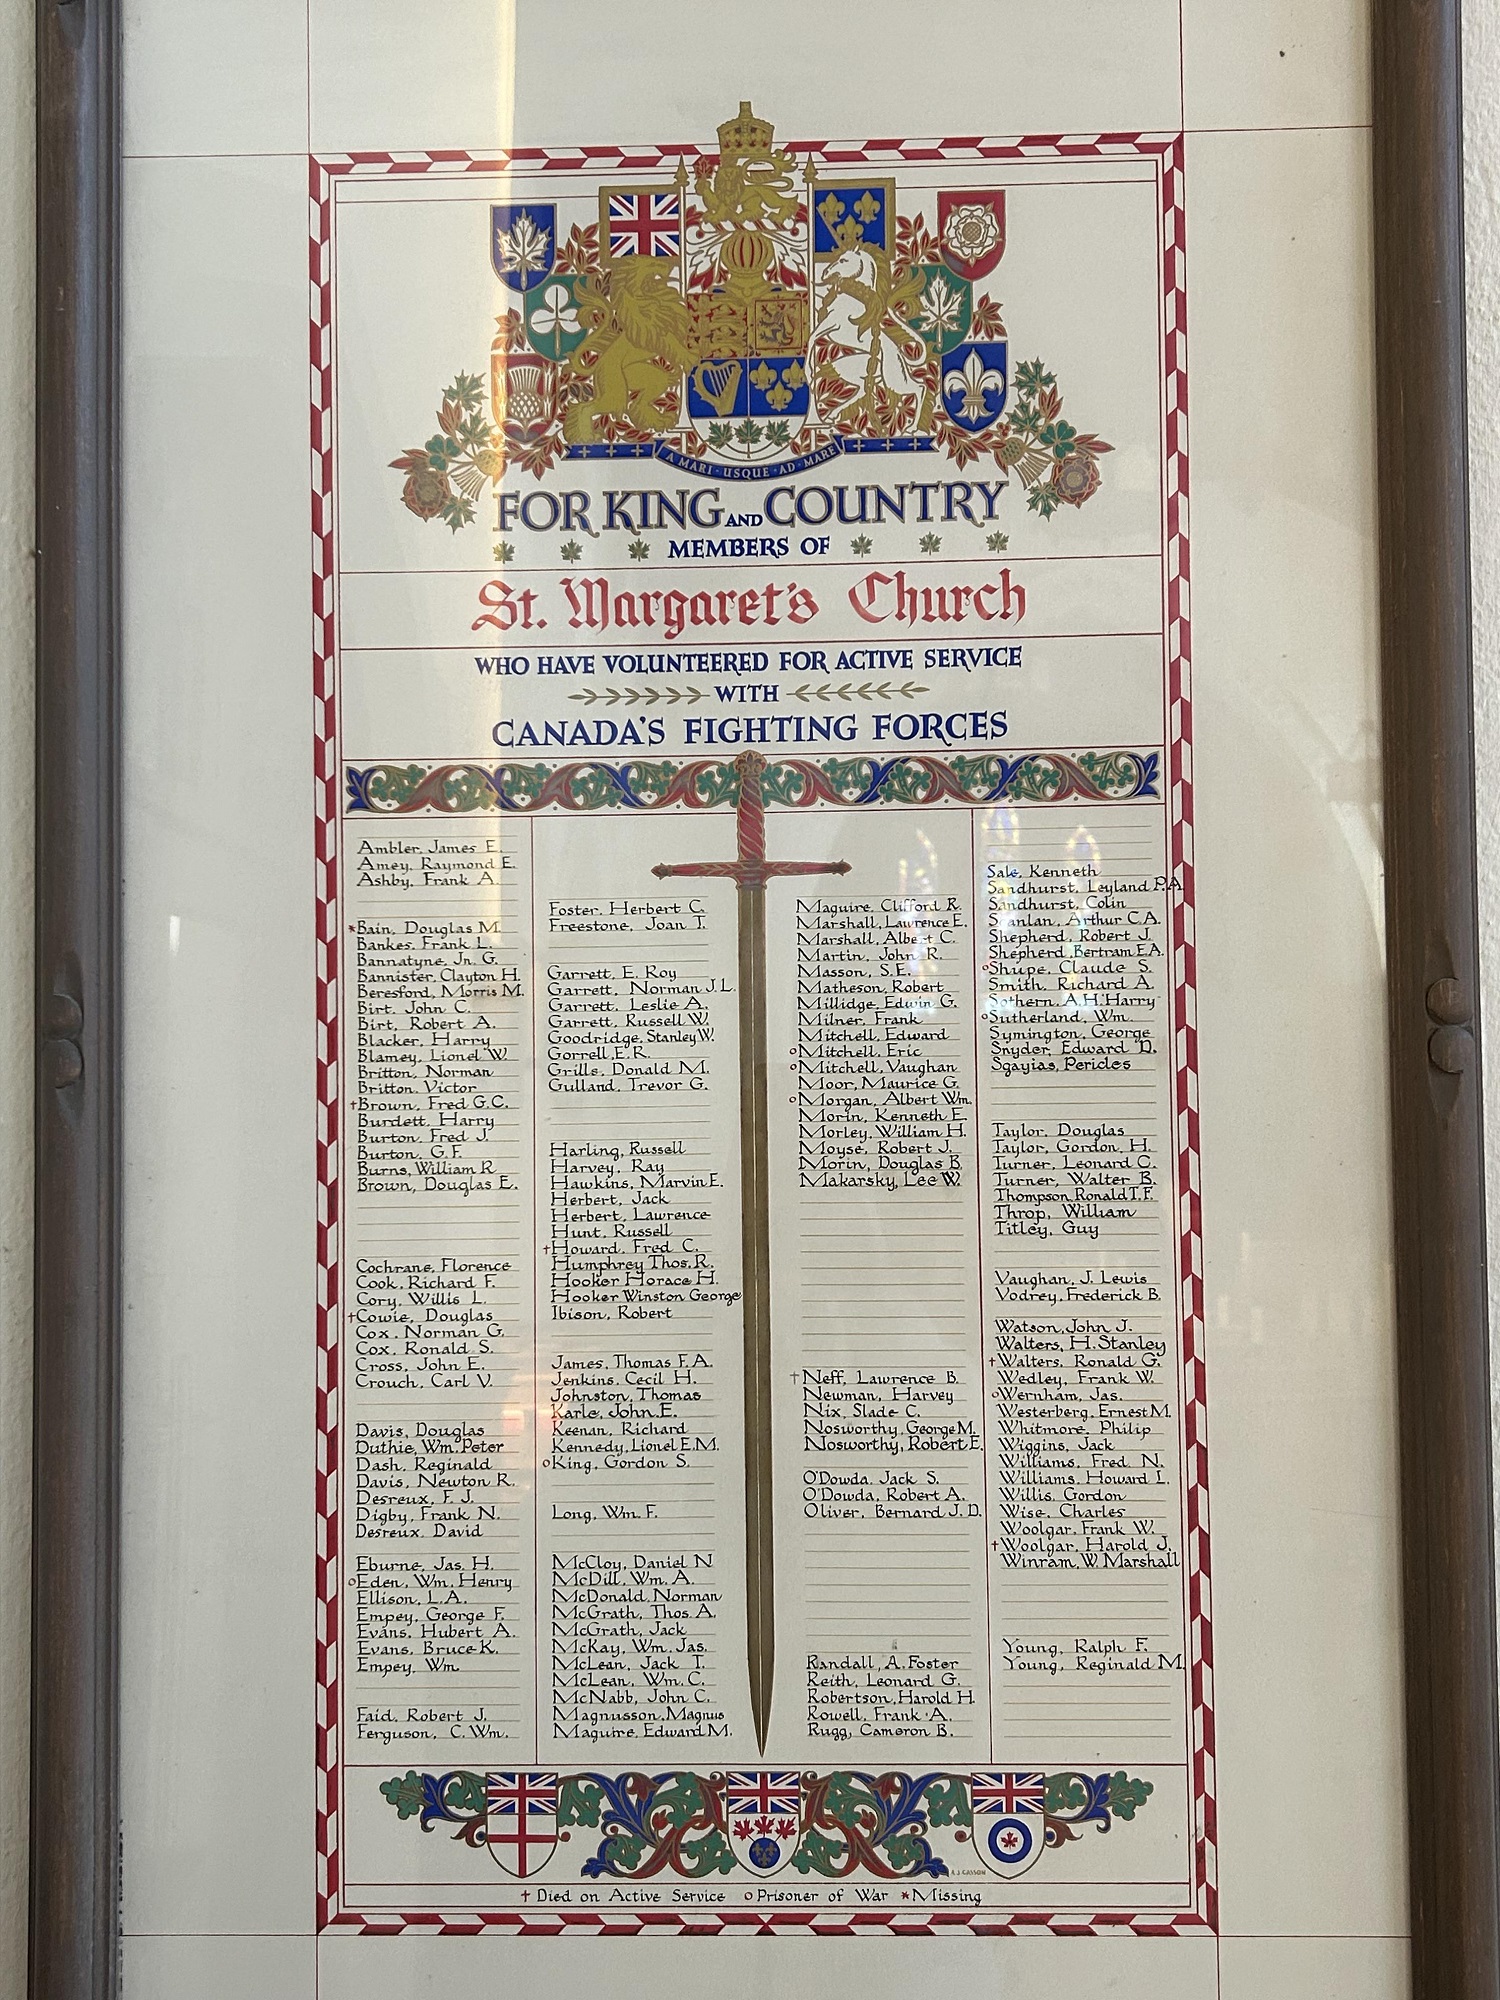 A MARI · USQUE · AD · MARE
FOR KING AND COUNTRY
MEMBERS OF
St. Margaret's Church
WHO HAVE VOLUNTEERED FOR ACTIVE SERVICE
WITH
CANADA'S FIGHTING FORCES
Ambler, James E.
Amey, Raymond E.
Ashby, Frank A.
*Bain, Douglas M.
Bankes, Frank L.
Bannatyne, Jn. G.
Bannister, Clayton H.
Beresford, Morris M.
Birt, John C.
Birt, Robert A.
Blacker, Harry
Blamey, Lionel W.
Britton, Norman
Britton, Victor
†Brown, Fred G.C.
Burdett, Harry
Burton, Fred J.
Burton, G.F.
Burns, William R
Brown, Douglas E.
Cochrane, Florence
Cook, Richard F.
Cory, Willis L.
†Cowie, Douglas
Cox, Norman G.
Cox, Ronald S.
Cross, John E.
Crouch, Carl V.
Davis, Douglas
Duthie, Wm. Peter
Dash, Reginald
Davis, Newton R.
Desreux, F. J.
Digby, Frank N.
Desreux, David
Eburne, Jas. H.
oEden, Wm. Henry
Ellison, L.A.
Empey, George F.
Evans, Hubert A.
Evans, Bruce K.
Empey, Wm.
Faid, Robert J.
Ferguson, C. Wm.
Foster, Herbert C.
Freestone, Joan T.
Garrett, E. Roy
Garrett, Norman J.L.
Garrett, Leslie A.
Garrett, Russell W.
Goodridge, Stanley W.
Gorrell, E.R.
Grills, Donald M.
Gulland, Trevor G.
Harling, Russell
Harvey, Ray
Hawkins, Marvin E.
Herbert, Jack
Herbert, Lawrence
Hunt, Russell
†Howard, Fred C.
Humphrey Thos. R.
Hooker Horace H.
Hooker Winston George
Ibison, Robert
James, Thomas F.A.
Jenkins, Cecil H.
Johnston, Thomas
Karle, John E.
Keenan, Richard
Kennedy, Lionel E.M.
oKing, Gordon S.
Long, Wm. F.
McCloy, Daniel N
McDill, Wm. A.
McDonald, Norman
McGrath, Thos. A.
McGrath, Jack
McKay, Wm. Jas.
McLean, Jack T.
McLean, Wm. C.
McNabb, John C.
Magnusson, Magnus
Maguire, Edward M.
Maguire, Clifford R.
Marshall, Lawrence E.
Marshall, Albert C.
Martin, John R.
Masson, S.E.
Matheson, Robert
Millidge, Edwin G.
Milner, Frank
Mitchell, Edward
oMitchell, Eric
oMitchell, Vaughan
Moor, Maurice G.
oMorgan, Albert Wm.
Morin, Kenneth E.
Morley, William H.
Moyse, Robert J.
Morin, Douglas B.
Makarsky, Lee W.
†Neff, Lawrence B.
Newman, Harvey
Nix, Slade C.
Nosworthy, George M.
Nosworthy, Robert E.
O'Dowda, Jack S.
O'Dowda, Robert A.
Oliver, Bernard J. D.
Randall, A. Foster
Reith, Leonard G.
Robertson, Harold H.
Rowell, Frank A.
Rugg, Cameron B.
Sale, Kenneth
Sandhurst, Leyland P.A.
Sandhurst, Colin
Scanlan, Arthur C.A.
Shepherd, Robert J.
Shepherd, Bertram E.A.
oShupe, Claude S.
Smith, Richard A.
Sothern, A.H. Harry
oSutherland, Wm.
Symington, George
Snyder, Edward D.
Sgayias, Pericles
Taylor, Douglas
Taylor, Gordon H.
Turner, Leonard C.
Turner, Walter B.
Thompson, Ronald T.F.
Throp, William
Titley, Guy
Vaughan, J. Lewis
Vodrey, Frederick B.
Watson, John J.
Walters, H. Stanley
†Walters, Ronald G.
Wedley, Frank W.
oWernham, Jas.
Westerberg, Ernest M.
Whitmore, Philip
Wiggins, Jack
Williams, Fred N.
Williams, Howard L.
Willis, Gordon
Wise, Charles
Woolgar, Frank W.
†Woolgar, Harold J.
Winram, W. Marshall
Young, Ralph F.
Young, Reginald M.
A J CASSON
† Died on Active Service o Prisoner of War * Missing